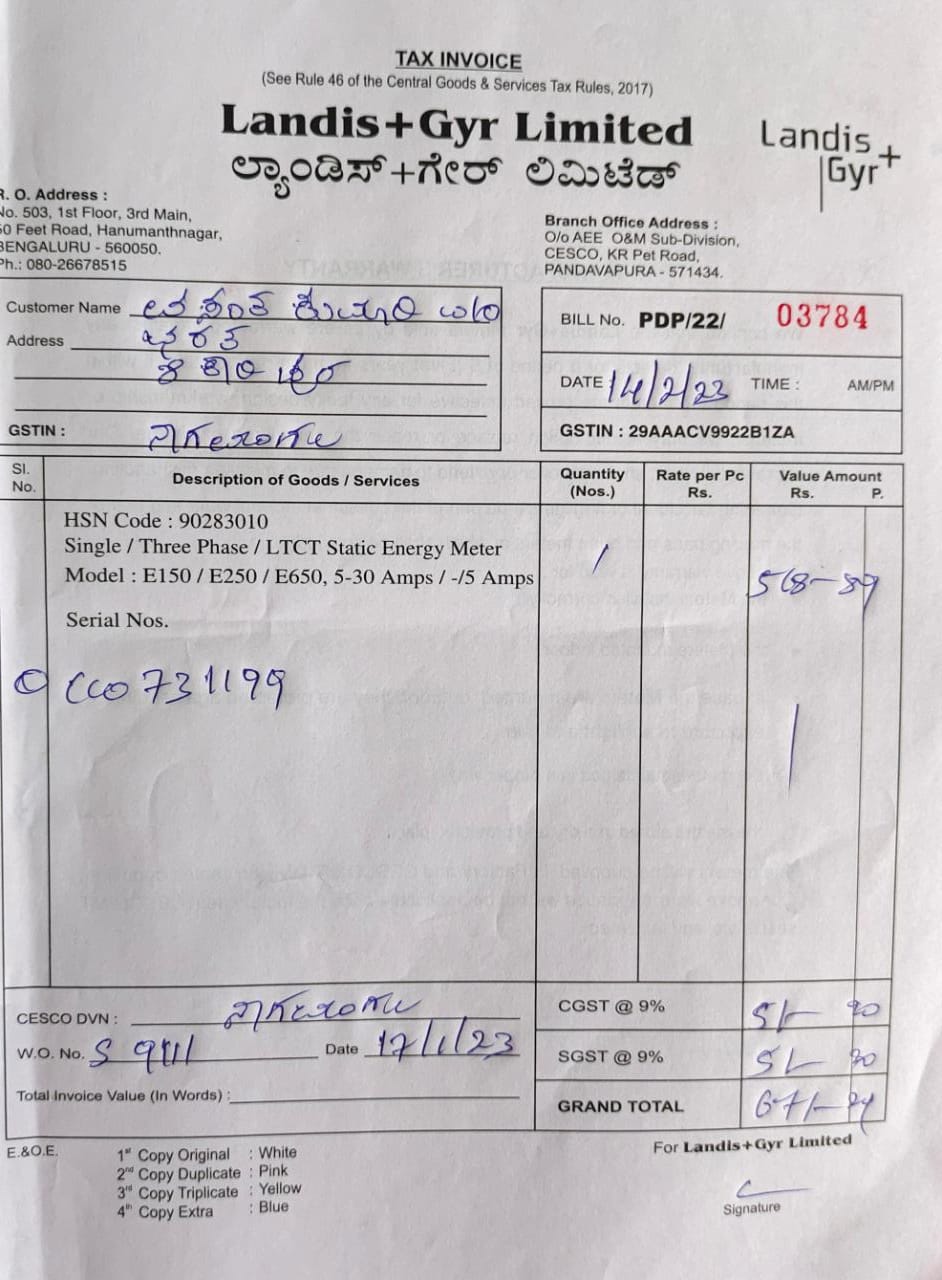 TAX INVOICE
(See Rule 46 of the Central Goods & Services Tax Rules, 2017)
Landis+Gyr Limited
ಲ್ಯಾಂಡಿಸ್+ಗೇರ್ ಲಿಮಿಟೆಡ್
Landis
Gyr+
R. O. Address :
No. 503, 1st Floor, 3rd Main,
60 Feet Road, Hanumanthnagar,
BENGALURU - 560050.
Ph.: 080-26678515
Branch Office Address :
O/o AEE O&M Sub-Division,
CESCO, KR Pet Road,
PANDAVAPURA - 571434.
Customer Name
Address
GSTIN :
BILL No. PDP/22/ 03784
DATE 14/2/23 TIME : AM/PM
GSTIN : 29AAACV9922B1ZA
Sl. No. Description of Goods / Services Quantity (Nos.) Rate per Pc Rs. Value Amount Rs. P.
HSN Code : 90283010
Single / Three Phase / LTCT Static Energy Meter
Model : E150 / E250 / E650, 5-30 Amps / -/5 Amps 1 568-89
Serial Nos.
CCO731199
CESCO DVN :
W.O. No. Date 17/1/23
Total Invoice Value (In Words) :
CGST @ 9%
SGST @ 9%
GRAND TOTAL
E.&O.E.
1st Copy Original : White
2nd Copy Duplicate : Pink
3rd Copy Triplicate : Yellow
4th Copy Extra : Blue
For Landis+Gyr Limited
Signature